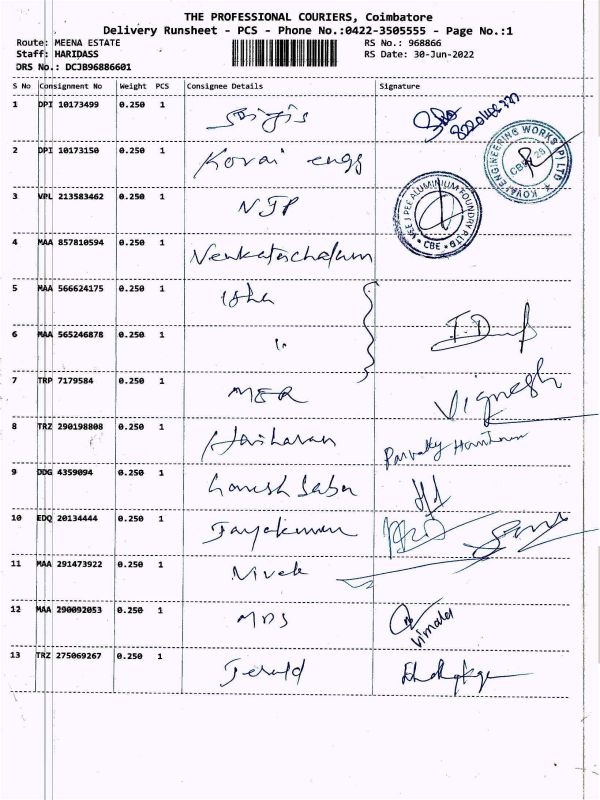 THE PROFESSIONAL COURIERS, Coimbatore
Delivery Runsheet - PCS - Phone No.:0422-3505555 - Page No.:1
Route: MEENA ESTATE RS No.: 968866
Staff: HARIDASS RS Date: 30-Jun-2022
DRS No.: DCJB96886601
S No Consignment No Weight PCS Consignee Details Signature
1 DPI 10173499 0.250 1
2 DPI 10173150 0.250 1 Kovai engg
KOVAI ENGINEERING WORKS (P) LTD
CBE-28
3 VPL 213583462 0.250 1 NJP
VEEJPEE ALUMINIUM FOUNDRY P LTD
CBE
4 MAA 857810594 0.250 1 Venkatachalam
5 MAA 566624175 0.250 1 Usha
6 MAA 565246878 0.250 1 "
7 TRP 7179584 0.250 1 MER Vignesh
8 TRZ 290198808 0.250 1 Hariharan Parvathy Hariharan
9 DDG 4359094 0.250 1 Ganesh babu
10 EDQ 20134444 0.250 1 Jayakumar
11 MAA 291473922 0.250 1 Vivek
12 MAA 290092053 0.250 1 MDS Vimala
13 TRZ 275069267 0.250 1 Jerald